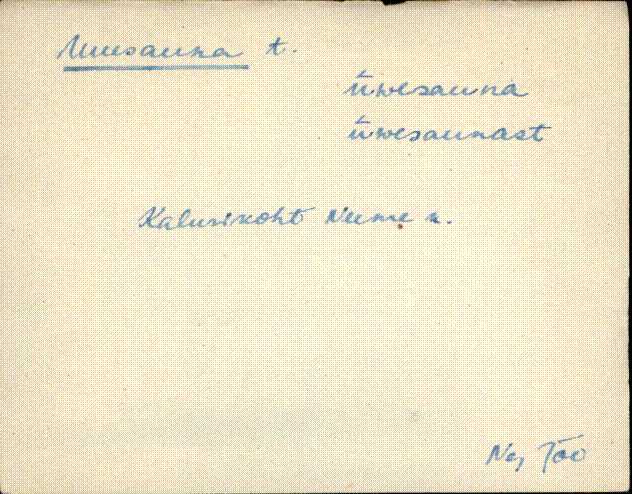 Uuesauna t.
üwesauna
üwesaunast
Kalurikoht Neeme k.